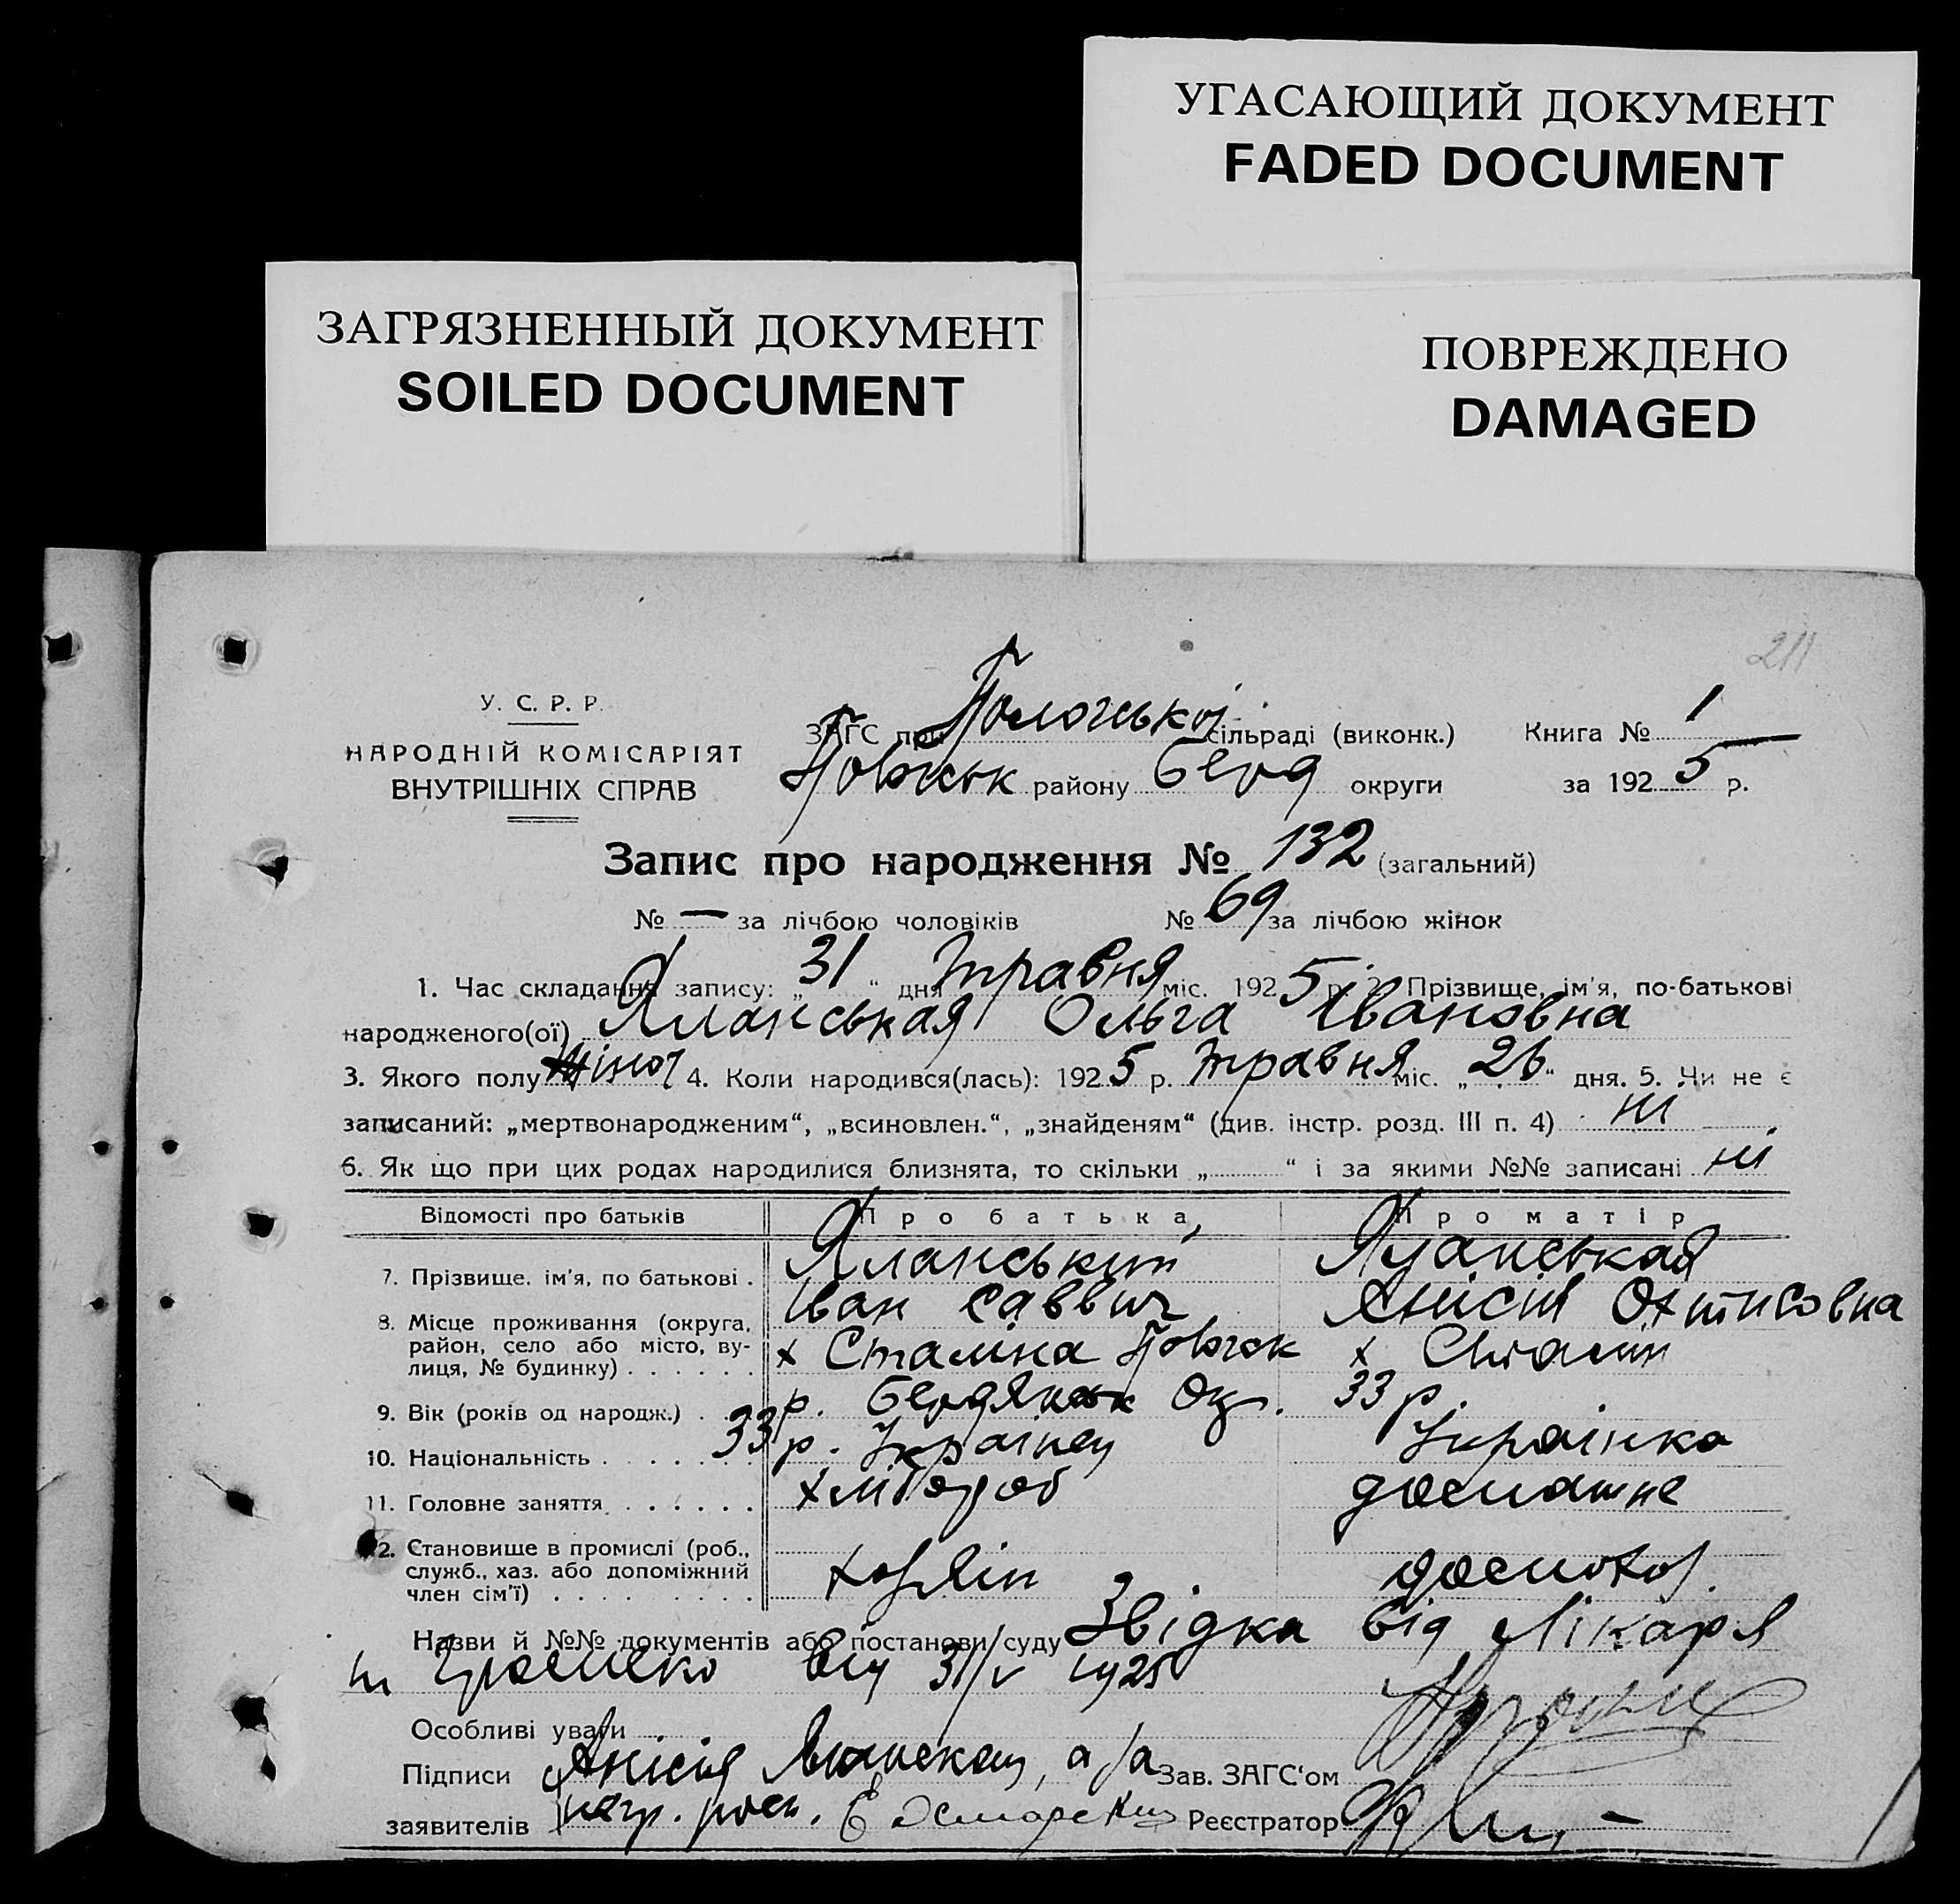 УГАСАЮЩИЙ ДОКУМЕНТ
FADED DOCUMENT
ЗАГРЯЗНЕННЫЙ ДОКУМЕНТ
SOILED DOCUMENT
ПОВРЕЖДЕНО
DAMAGED
211
У. С. Р. Р.
НАРОДНІЙ КОМІСАРІЯТ
ВНУТРІШНІХ СПРАВ
ЗАГС при Пологській сільраді (виконк.) Книга № 1
району Берд округи за 1925 р.
Запис про народження № 132 (загальний)
№ — за лічбою чоловіків № 69 за лічбою жінок
1. Час складання запису: „31“ дня Травня міс. 1925 р. 2. Прізвище, ім'я, по-батькові
народженого(ої) Яланськая Ольга Івановна
3. Якого полу жіноч 4. Коли народився(лась): 1925 р. Травня міс. „26“ дня. 5. Чи не є
записаний: „мертвонародженим“, „всиновлен.“, „знайденям“ (див. інстр. розд. III п. 4) ні
6. Як що при цих родах народилися близнята, то скільки „ “ і за якими №№ записані ні
Відомості про батьків Про батька Про матір
7. Прізвище, ім'я, по батькові . Яланський Яланськая
Іван Саввич Анісія
8. Місце проживання (округа, район, село або місто, вулиця, № будинку) . . . . . . х Сталіна х
р. Бердянськ Ок. 33 р.
9. Вік (років од народж.) . . 33 р.
10. Національність . . . . . . . Українец Українка
11. Головне заняття . . . . . . хлібороб домашне
12. Становище в промислі (роб., служб., хаз. або допоміжний член сім'ї) . . . . . . . . хазяін домохоз.
Назви й №№ документів або постанови суду Звідка від Лікаря
від 31/V 1925
Особливі уваги
Підписи Анісія Яланская, а/а Зав. ЗАГС'ом
заявителів негр. росп. Реєстратор